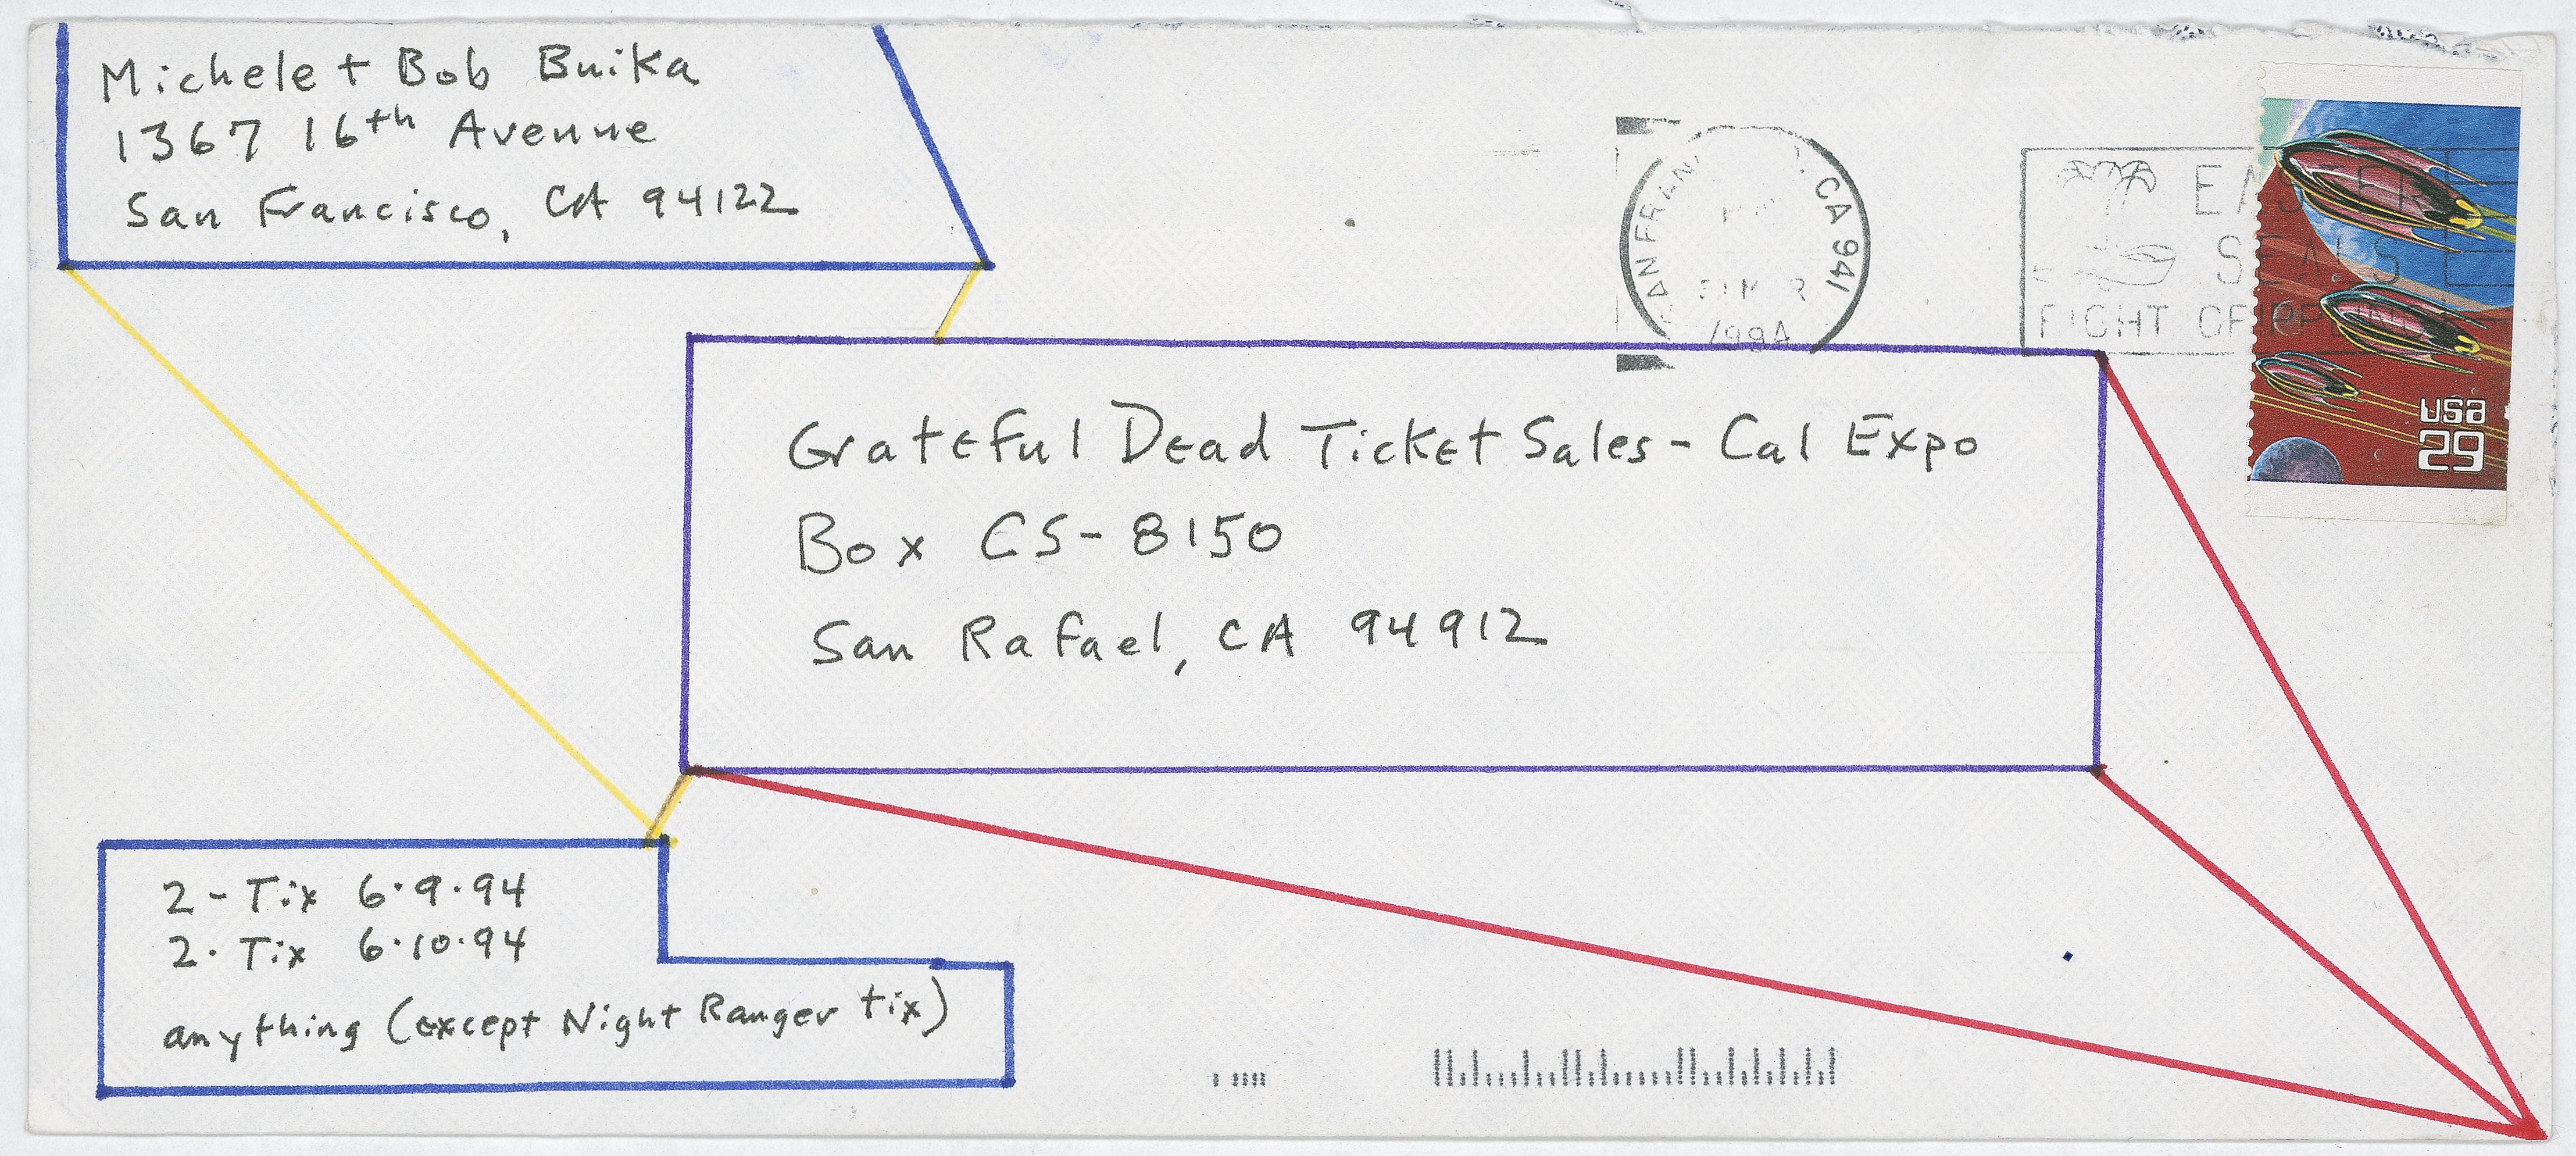 Michele + Bob Buika
1367 16th Avenue
San Francisco, CA 94122
CA 941
1994
EASTER
SEALS
FIGHT CRIPPLING
USA
29
Grateful Dead Ticket Sales - Cal Expo
Box CS-8150
San Rafael, CA 94912
2 - Tix 6.9.94
2. Tix 6.10.94
anything (except Night Ranger tix)